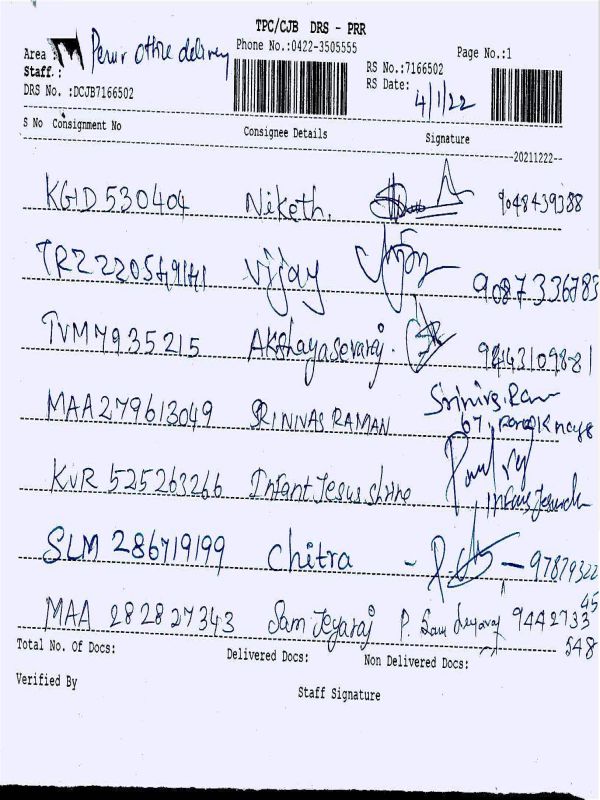 TPC/CJB DRS - PRR
Area : Perur office delivery Phone No.:0422-3505555 Page No.:1
Staff.: RS No.:7166502
DRS No. :DCJB7166502 RS Date: 4/1/22
S No Consignment No Consignee Details Signature
--20211222--
KGID 530404 Niketh. 9048439388
TRZ 220549141 Vijay 9087336783
TVM7935215 Akshayasevaraj. 9443109881
MAA279613049 SRINIVAS RAMAN Srinivs. Ram
67,
KVR 525263266 Infant Jesus shrine
SLM 286719199 Chitra - - 97879322
45
MAA 282827343 Sam Jeyaraj P. Sam Jeyaraj 9442733
548
Total No. Of Docs: Delivered Docs: Non Delivered Docs:
Verified By Staff Signature